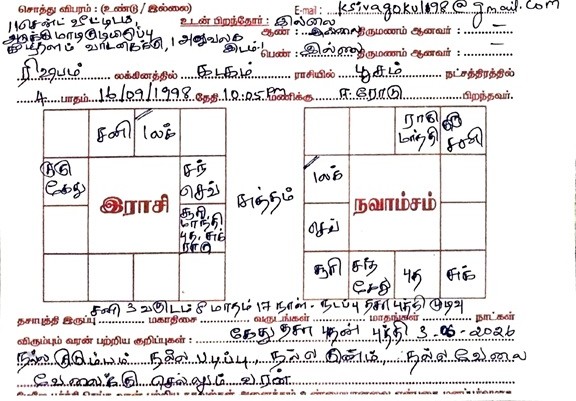 சொத்து விபரம் : (உண்டு / இல்லை) E-mail : ksivagokul1998@gmail.com
11 சென்ட் வீட்டிடம், உடன் பிறந்தோர் : இல்லை
ஆண் : இல்லை திருமணம் ஆனவர் : —
வாடகைக்கு, 1 அலுவலக இடம்
பெண் : இல்லை திருமணம் ஆனவர் : —
ரிஷபம் லக்கினத்தில் கடகம் ராசியில் பூசம் நட்சத்திரத்தில்
4 பாதம் 16/09/1998 தேதி 10:05 Pm மணிக்கு ஈரோடு பிறந்தவர்.
சனி லக்
குரு கேது
சந் செவ்
சூரி, மாந்தி புத, சுக் ராகு
இராசி
சுத்தம்
ராகு மாந்தி
குரு சனி
லக்
செவ்
சூரி சந் கேது புத சுக்
நவாம்சம்
சனி 3 வருடம் 8 மாதம் 17 நாள் - நடப்பு தசா புத்தி முடிவு
தசாபுத்தி இருப்பு : மகாதிசை வருடங்கள் மாதங்கள் நாட்கள்
விரும்பும் வரன் பற்றிய குறிப்புகள் : கேது தசா புதன் புத்தி 3-06-2026
நல்ல குடும்பம் நல்ல படிப்பு, நல்ல குணம், நல்ல வேலை
வேலைக்கு செல்லும் வரன்